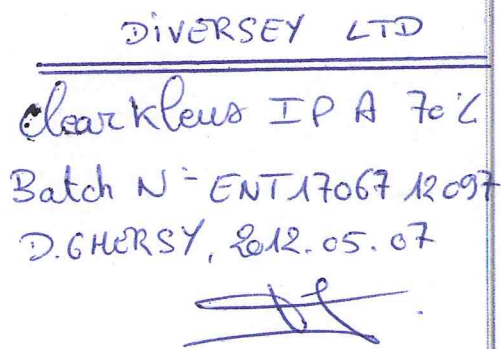 DiVERSEY LTD
clearKlens IPA 70%
Batch N= ENT17067 12097
D.GHERSY, 2012.05.07